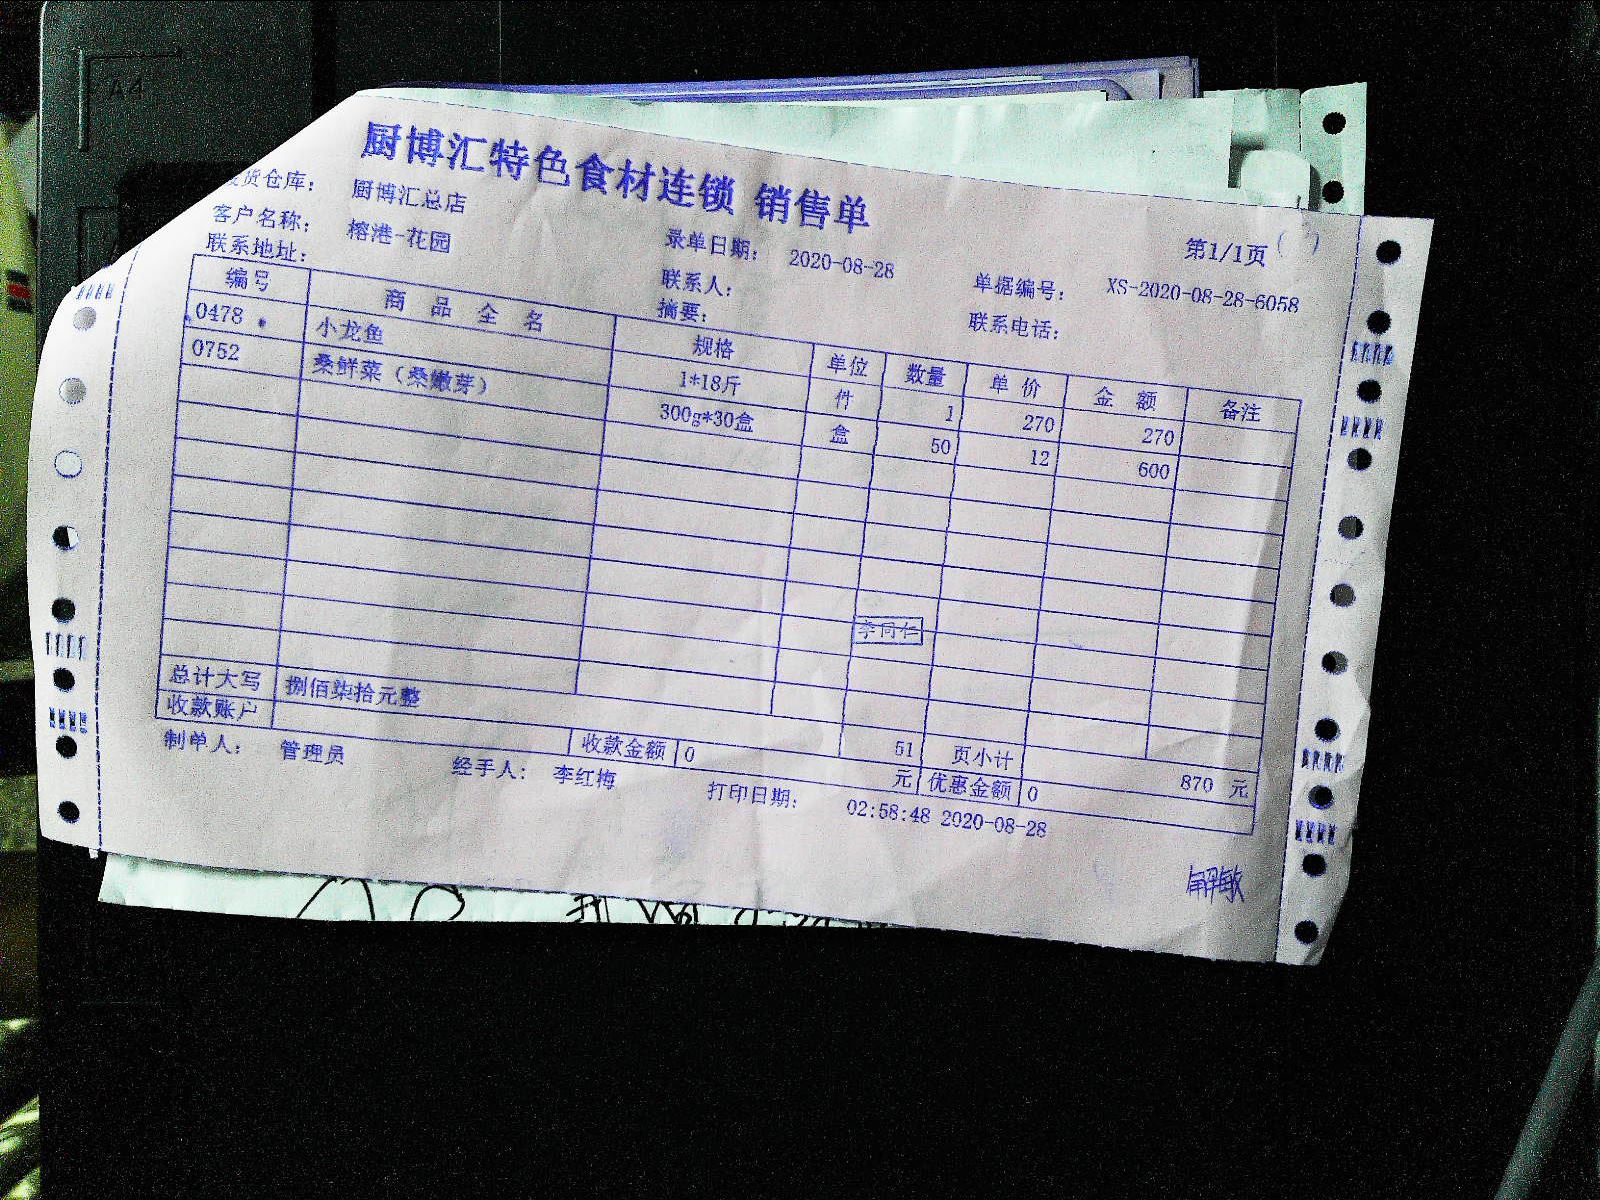 A4
厨博汇特色食材连锁 销售单
第1/1页
发货仓库： 厨博汇总店
客户名称： 榕港-花园 录单日期： 2020-08-28 单据编号： XS-2020-08-28-6058
联系地址： 联系人： 联系电话：
摘要：
编号 商 品 全 名 规格 单位 数量 单 价 金 额 备注
0478 小龙鱼 1*18斤 件 1 270 270
0752 桑鲜菜（桑嫩芽） 300g*30盒 盒 50 12 600
李同仁
总计大写 捌佰柒拾元整 51 页小计 870 元
收款账户 收款金额 0 元 优惠金额 0
制单人： 管理员 经手人： 李红梅 打印日期： 02:58:48 2020-08-28
解敏